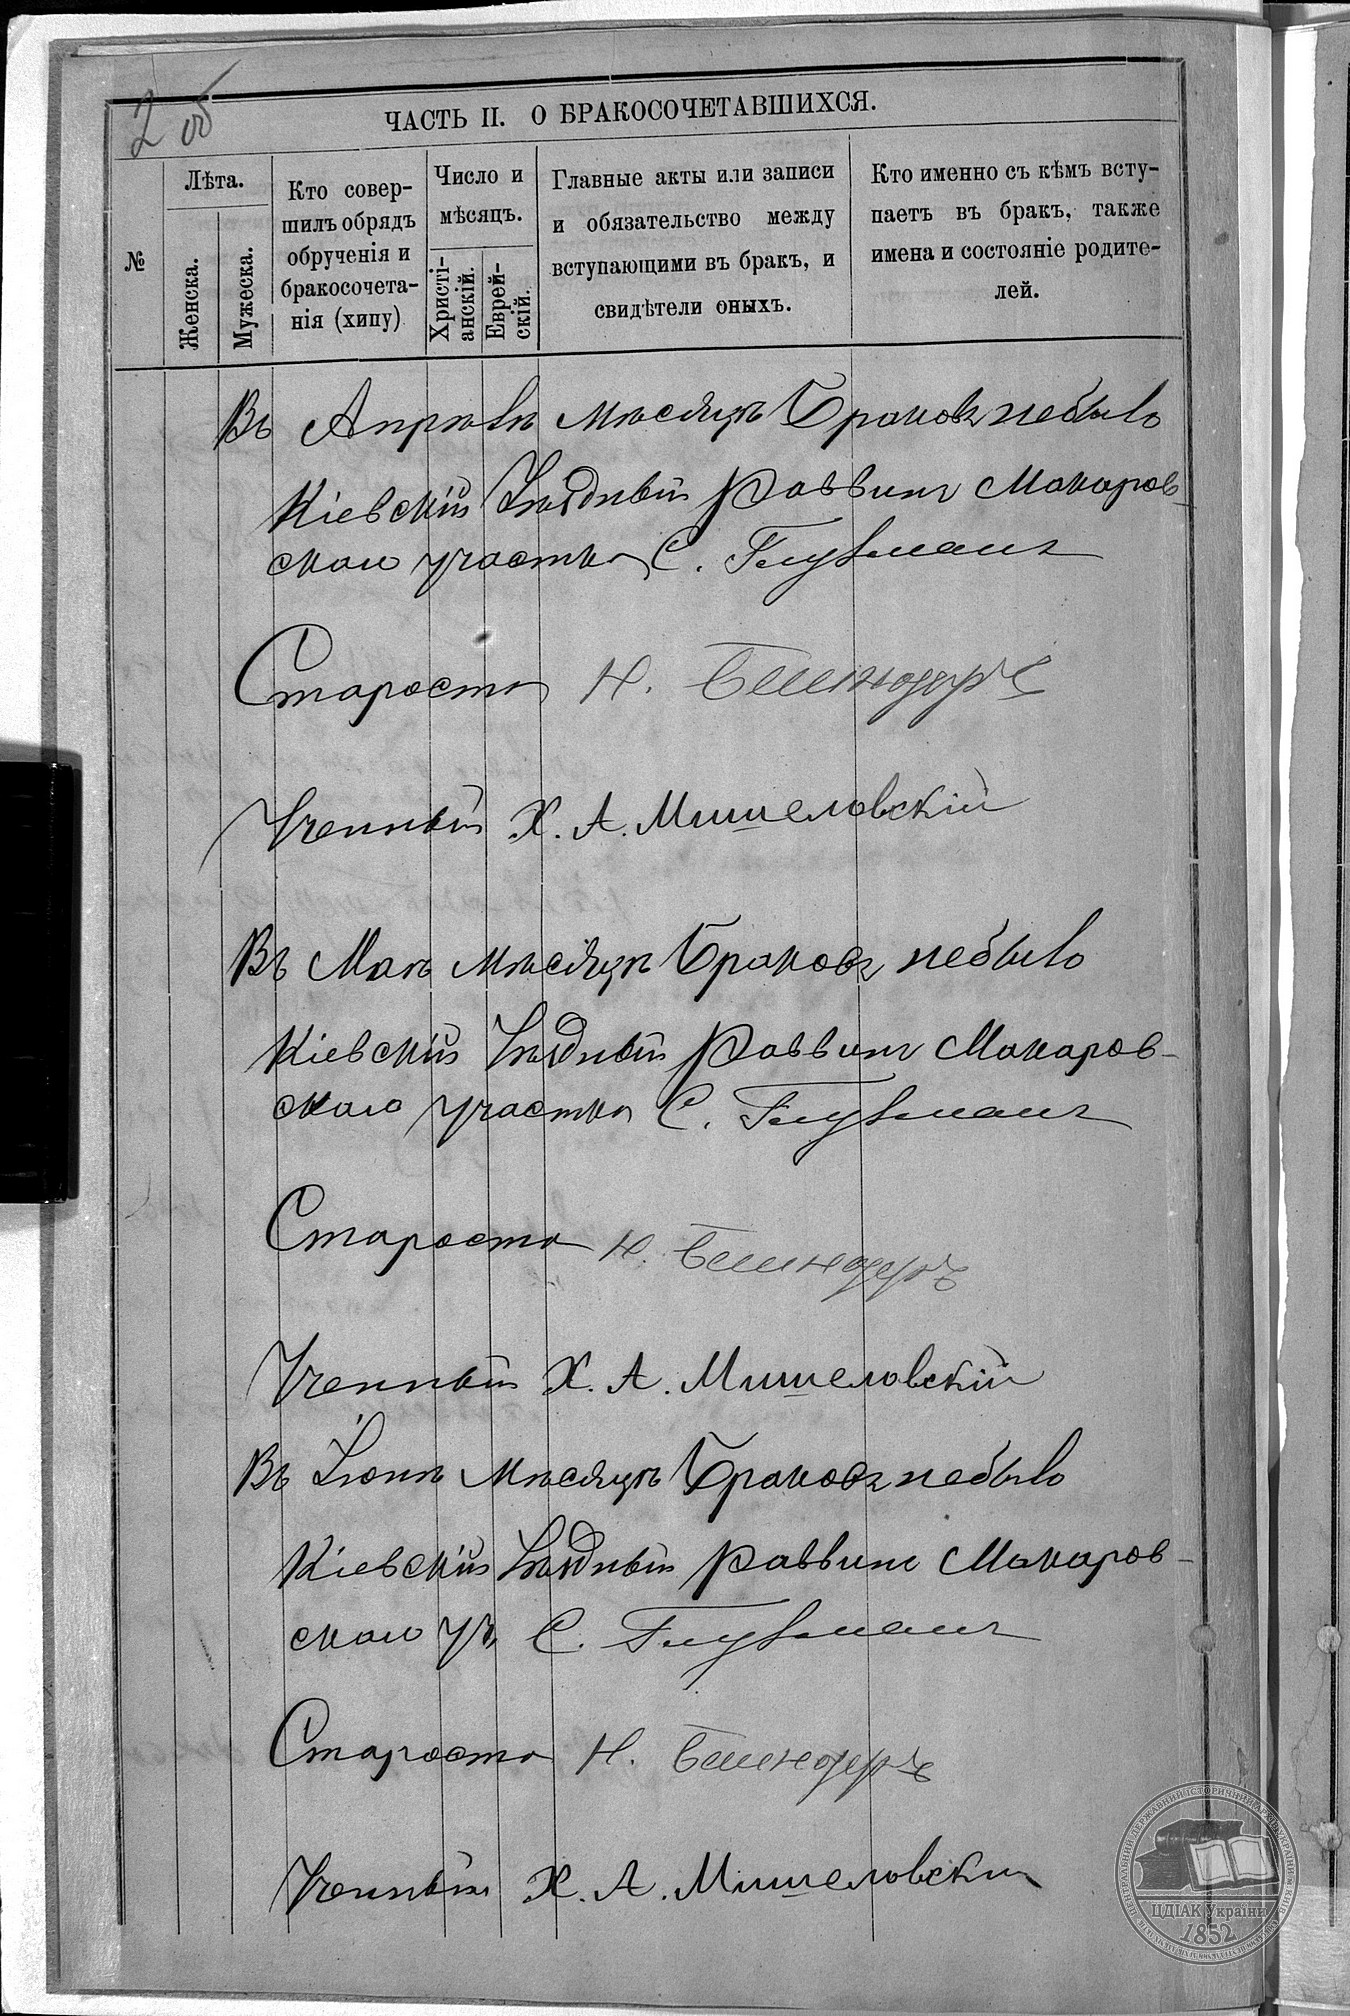 2 об
ЧАСТЬ II. О БРАКОСОЧЕТАВШИХСЯ.
№
Лѣта.
Женска.
Мужеска.
Кто совер-
шилъ обрядъ
обрученія и
бракосочета-
нія (хипу)
Число и
мѣсяцъ.
Христі-
анскій.
Еврей-
скій.
Главные акты или записи
и обязательство между
вступающими въ бракъ, и
свидѣтели оныхъ.
Кто именно съ кѣмъ всту-
паетъ въ бракъ, также
имена и состояніе родите-
лей.
Въ Апрѣлѣ мѣсяцѣ Браковъ небыло
Кіевскій Уѣздный раввинъ Макаров-
скаго участка С. Глузманъ
Староста Н.
Ученный Х. А. Мишеловскій
Въ Маѣ мѣсяцѣ Браковъ небыло
Кіевскій Уѣздный раввинъ Макаров-
скаго участка С. Глузманъ
Староста Н.
Ученный Х. А. Мишеловскій
Въ Іюнѣ мѣсяцѣ Браковъ небыло
Кіевскій Уѣздный раввинъ Макаров-
скаго уч. С. Глузманъ
Староста Н.
Ученный Х. А. Мишеловскій
ЦЕНТРАЛЬНИЙ ДЕРЖАВНИЙ ІСТОРИЧНИЙ АРХІВ УКРАЇНИ
ЦДІАК України
1852